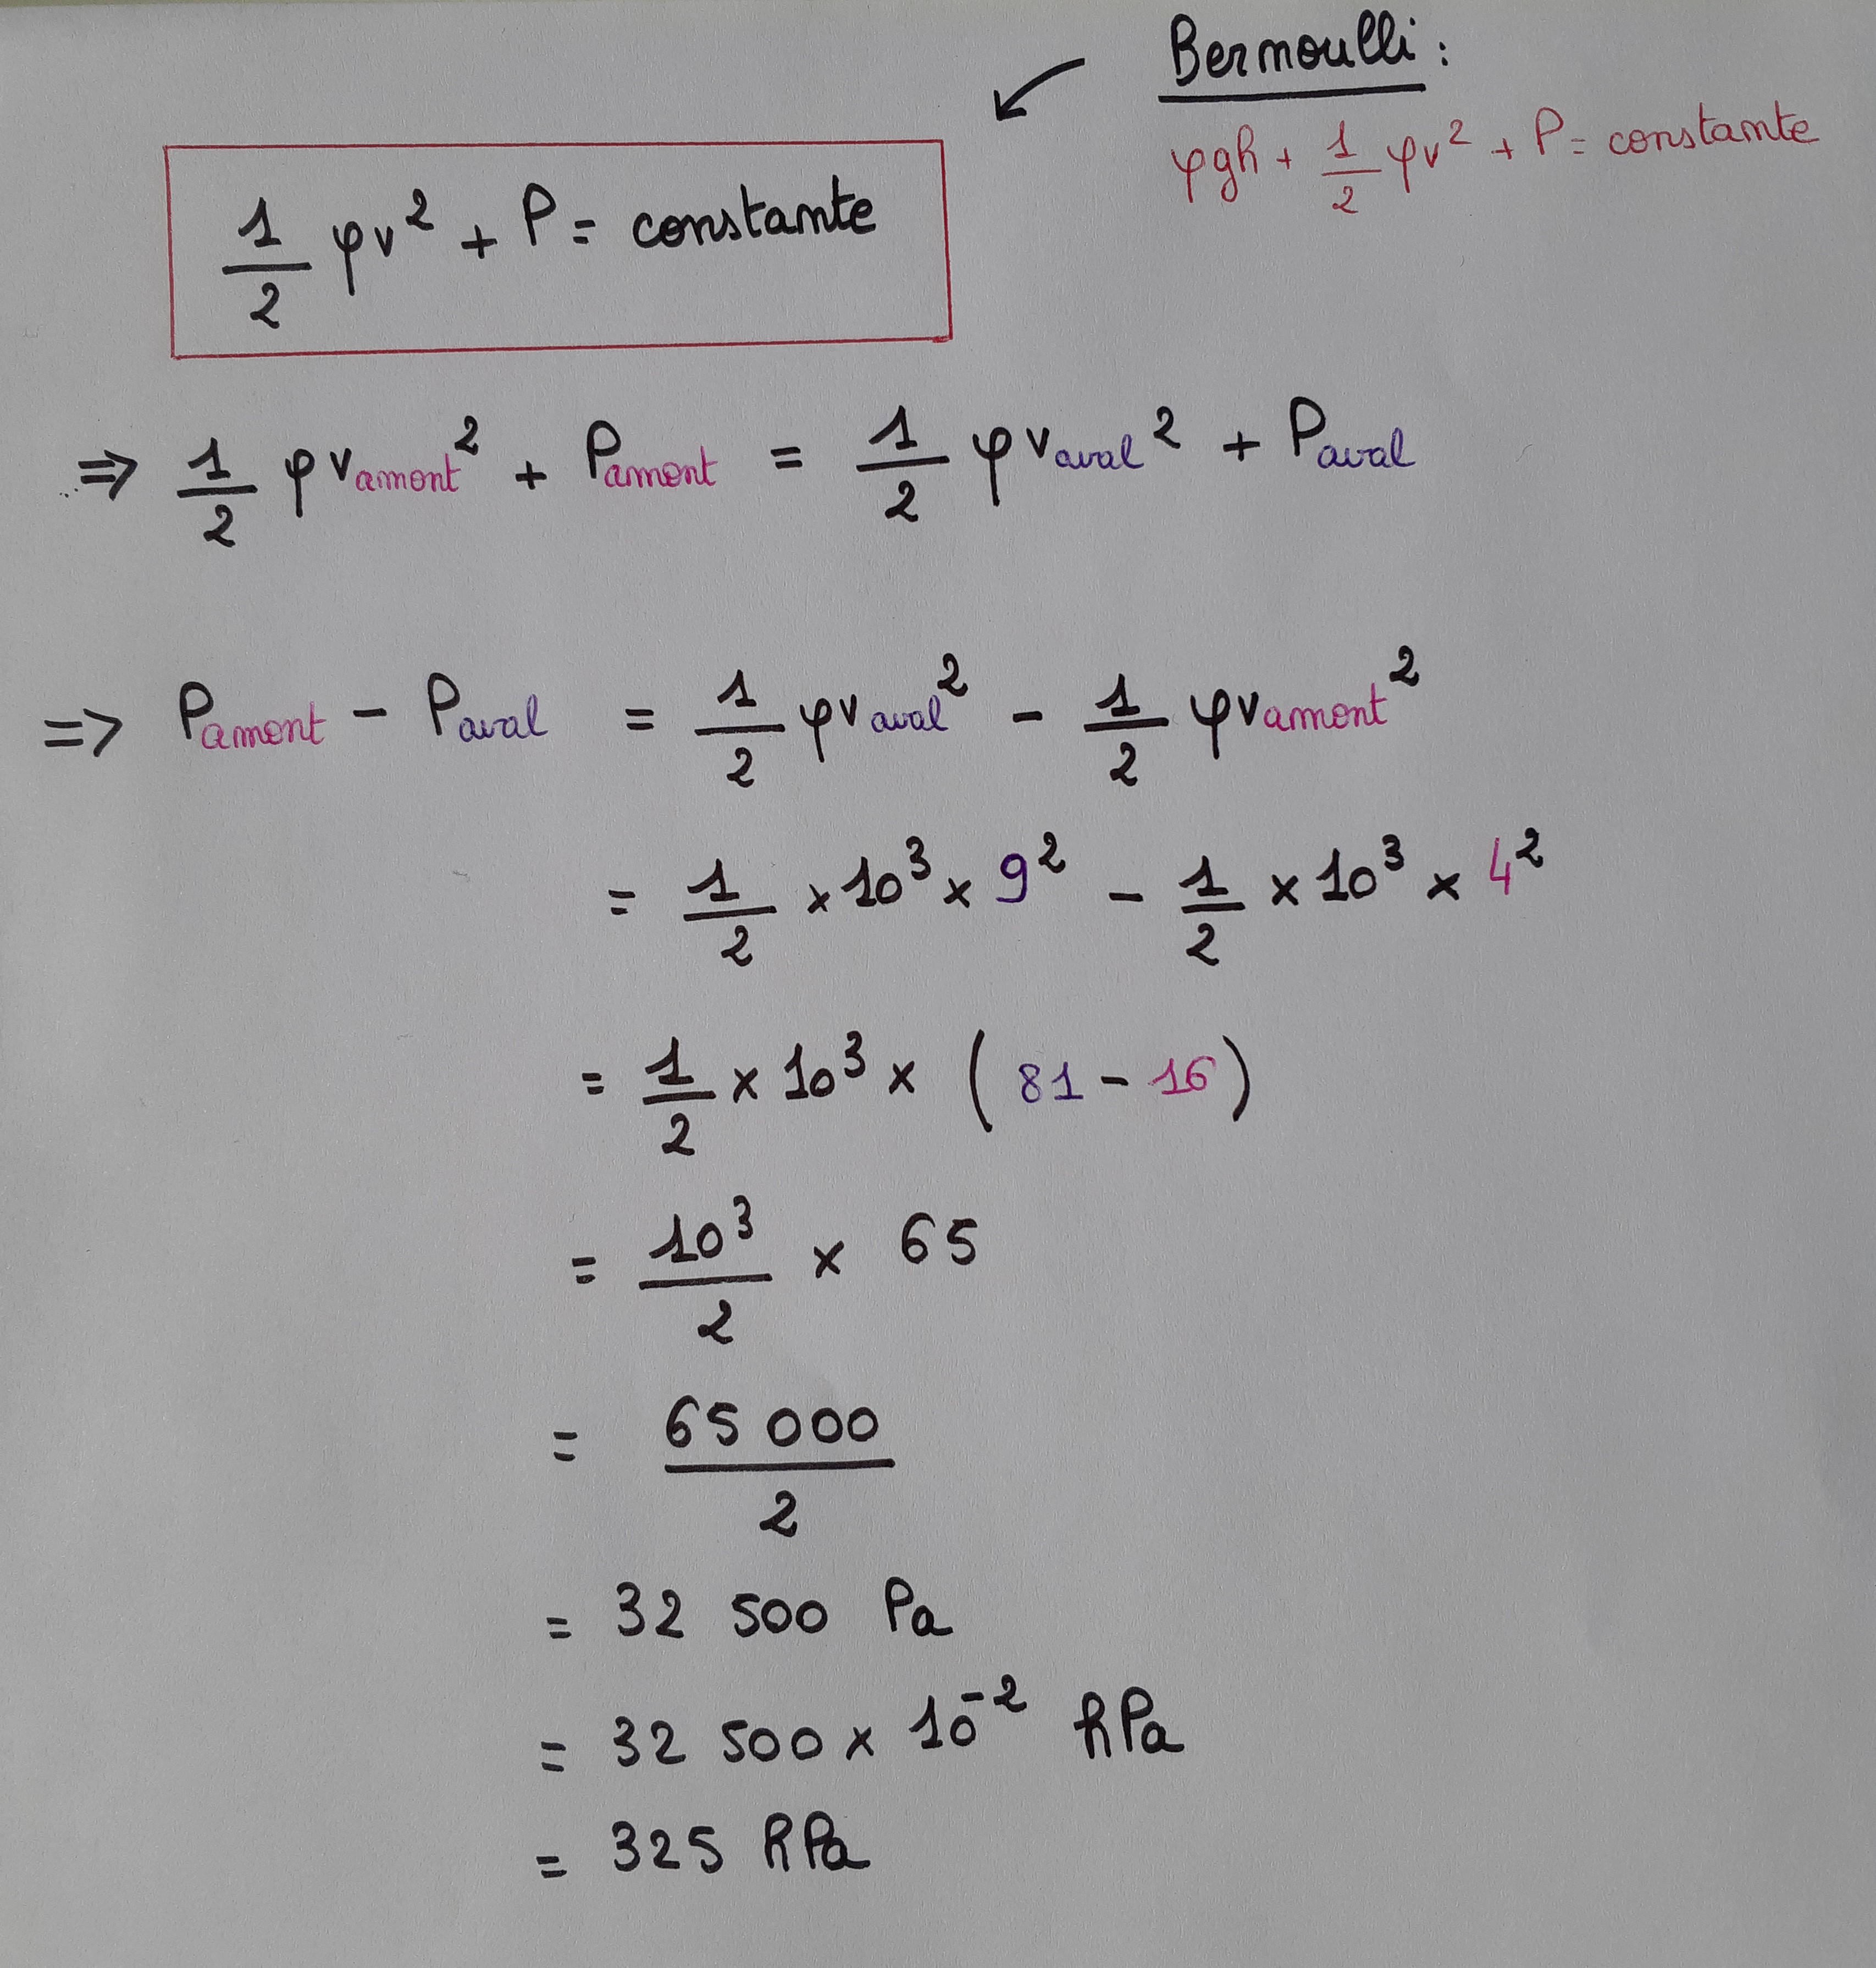 Bernoulli :
φgh + 1/2 φv² + P = constante
1/2 φv² + P = constante
⇒ 1/2 φv amont² + P amont = 1/2 φv aval² + P aval
=> P amont - P aval = 1/2 φv aval² - 1/2 φv amont²
= 1/2 × 10³ × 9² - 1/2 × 10³ × 4²
= 1/2 × 10³ × (81 - 16)
= 10³/2 × 65
= 65 000/2
= 32 500 Pa
= 32 500 × 10⁻² hPa
= 325 hPa